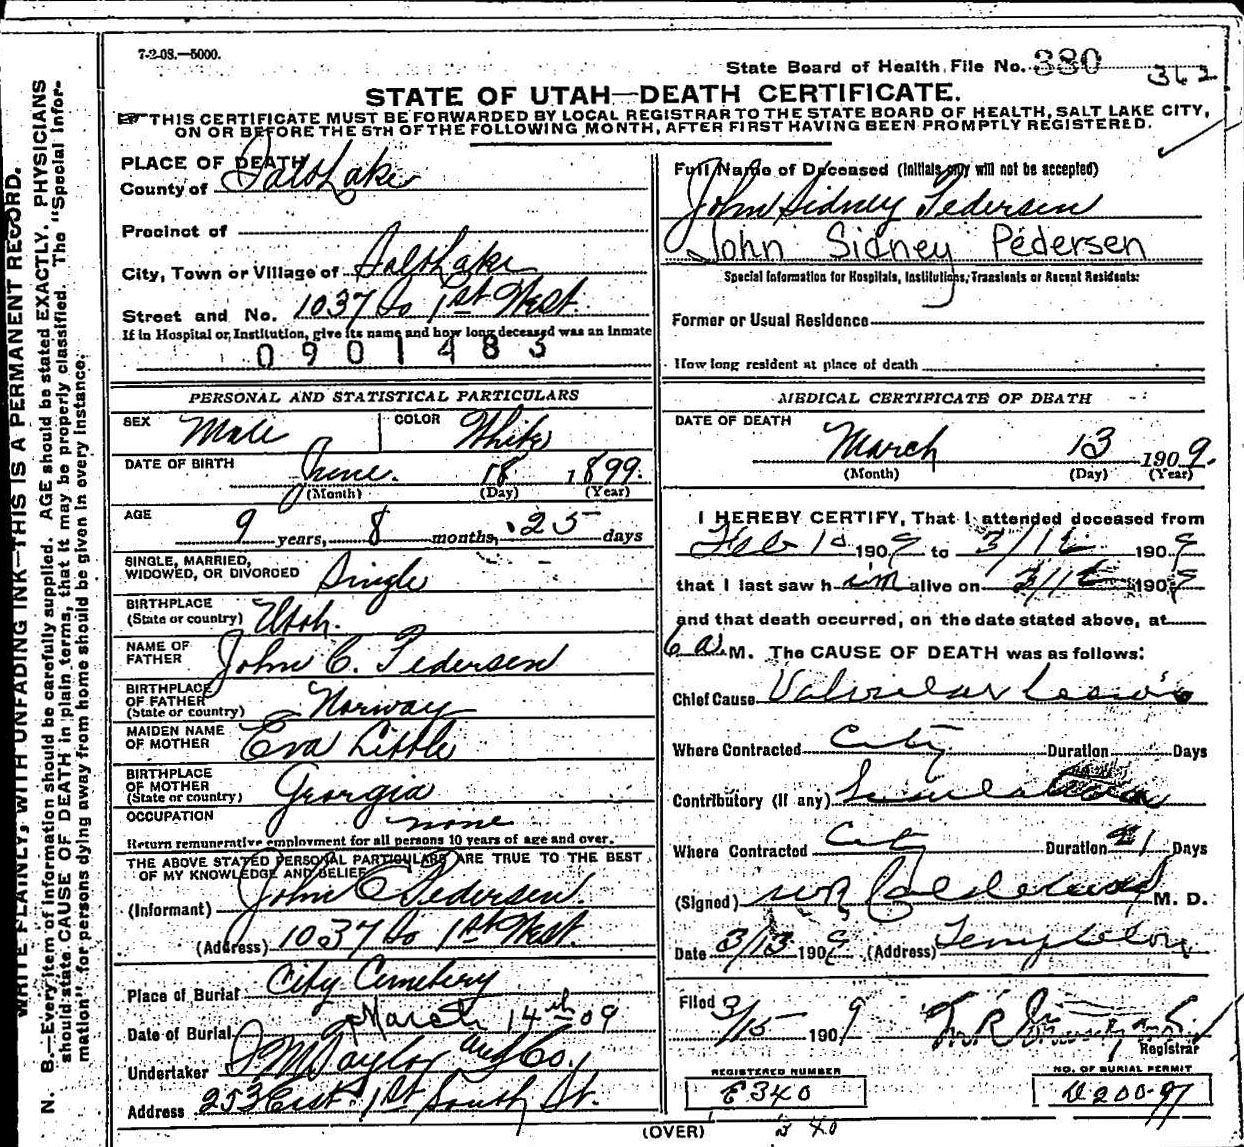 7-2-08.—5000.
State Board of Health, File No. 380
362
STATE OF UTAH—DEATH CERTIFICATE.
THIS CERTIFICATE MUST BE FORWARDED BY LOCAL REGISTRAR TO THE STATE BOARD OF HEALTH, SALT LAKE CITY,
ON OR BEFORE THE 5TH OF THE FOLLOWING MONTH, AFTER FIRST HAVING BEEN PROMPTLY REGISTERED.
WRITE PLAINLY, WITH UNFADING INK—THIS IS A PERMANENT RECORD.
N. B.—Every item of information should be carefully supplied. AGE should be stated EXACTLY. PHYSICIANS
should state CAUSE OF DEATH in plain terms, that it may be properly classified. The "Special Infor-
mation" for persons dying away from home should be given in every instance.
PLACE OF DEATH
County of Salt Lake
Precinct of
City, Town or Village of Salt Lake
Street and No. 1037 So 1st West.
If in Hospital or Institution, give its name and how long deceased was an inmate
0901483
PERSONAL AND STATISTICAL PARTICULARS
SEX Male COLOR White
DATE OF BIRTH June. 18 1899.
(Month) (Day) (Year)
AGE
9 years, 8 months, 25 days
SINGLE, MARRIED,
WIDOWED, OR DIVORCED Single
BIRTHPLACE
(State or country) Utah.
NAME OF
FATHER John C. Pedersen
BIRTHPLACE
OF FATHER
(State or country) Norway
MAIDEN NAME
OF MOTHER Eva Little
BIRTHPLACE
OF MOTHER
(State or country) Georgia
OCCUPATION none
Return remunerative employment for all persons 10 years of age and over.
THE ABOVE STATED PERSONAL PARTICULARS ARE TRUE TO THE BEST
OF MY KNOWLEDGE AND BELIEF
(Informant) John C Pedersen.
(Address) 1037 So 1st West.
Place of Burial City Cemetery
Date of Burial March 14th 09
Undertaker S M Taylor and Co.,
Address 253 East 1st South St.
Full Name of Deceased (Initials only will not be accepted)
John Sidney Pedersen
John Sidney Pedersen
Special Information for Hospitals, Institutions, Transients or Recent Residents:
Former or Usual Residence
How long resident at place of death
MEDICAL CERTIFICATE OF DEATH
DATE OF DEATH
March 13 1909.
(Month) (Day) (Year)
I HEREBY CERTIFY, That I attended deceased from
Feb 10 1909 to 3/12 1909
that I last saw him alive on 3/12 1909
and that death occurred, on the date stated above, at
6 a. M. The CAUSE OF DEATH was as follows:
Chief Cause Valvular Lesion
Where Contracted City Duration Days
Contributory (if any)
Where Contracted City Duration 21 Days
(Signed) M. D.
Date 3/13 1909 (Address) Templeton
Filed 3/15 1909
Registrar
REGISTERED NUMBER
E340
NO. OF BURIAL PERMIT
(OVER)